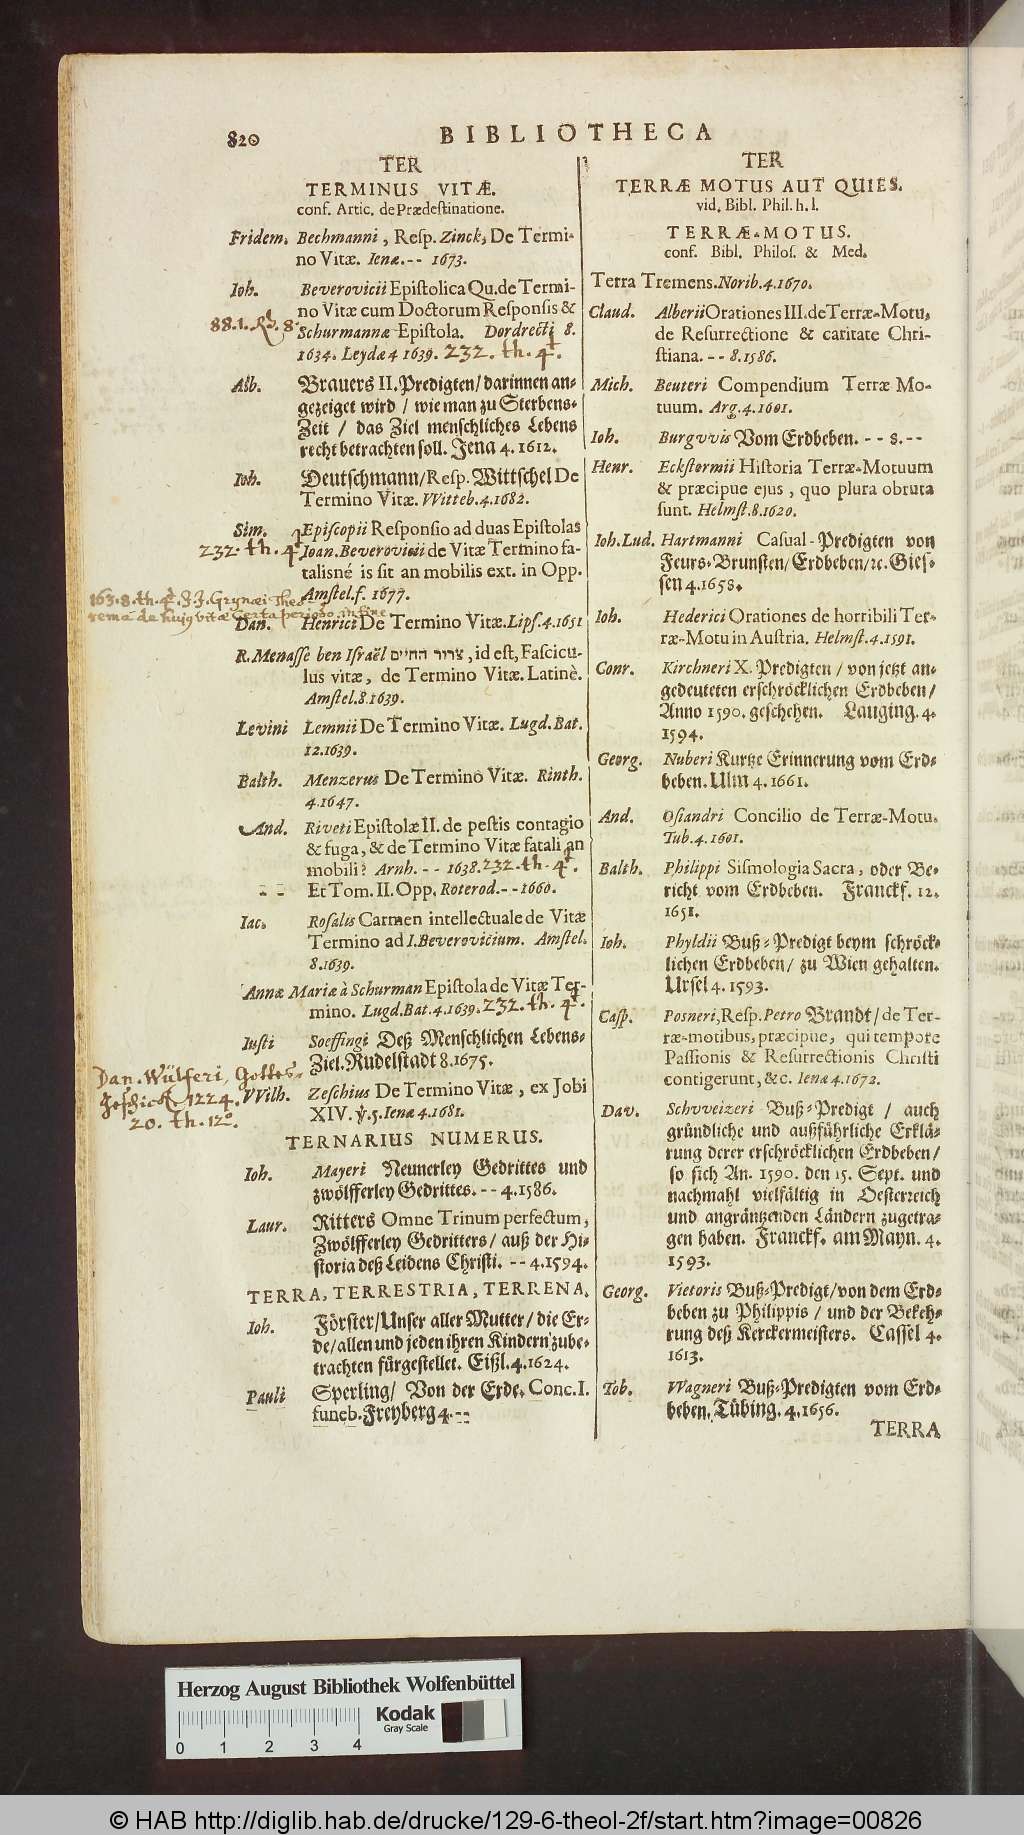 820 BIBLIOTHECA
TER
TERMINUS VITÆ.
conf. Artic. de Prædestinatione.
Fridem. Bechmanni, Resp. Zinck, De Termi-
no Vitæ. Ienæ. -- 1673.
Ioh. Beverovicii Epistolica Qu. de Termi-
no Vitæ cum Doctorum Responsis &
88.1. 8.
Schurmannæ Epistola. Dordrecti 8.
1634. Leydæ 4 1639. 232. th. 4°.
Alb. Brauers II. Predigten/ darinnen an-
gezeiget wird / wie man zu Sterbens-
Zeit / das Ziel menschliches Lebens
recht betrachten soll. Jena 4. 1612.
Ioh. Deutschmann/ Resp. Wittschel De
Termino Vitæ. Witteb. 4. 1682.
Sim. Episcopii Responsio ad duas Epistolas
232. th. 4°.
Ioan. Beverovicii de Vitæ Termino fa-
talisné is sit an mobilis ext. in Opp.
Amstel. f. 1677.
163.8. th. 4°. J. J. Grynæi Theo-
rema de hujus vitæ certa periodo in fine
Dan. Henrici De Termino Vitæ. Lips. 4. 1651
R. Menasse ben Israël צרור החיים, id est, Fascicu-
lus vitæ, de Termino Vitæ. Latinè.
Amstel. 8. 1639.
Levini Lemnii De Termino Vitæ. Lugd. Bat.
12. 1639.
Balth. Menzerus De Termino Vitæ. Rinth.
4. 1647.
And. Riveti Epistolæ II. de pestis contagio
& fuga, & de Termino Vitæ fatali an
mobili? Arnh. -- 1638. 232. th. 4°.
Et Tom. II. Opp. Roterod. -- 1660.
Iac. Rosalis Carmen intellectuale de Vitæ
Termino ad I. Beverovicium. Amstel.
8. 1639.
Annæ Mariæ à Schurman Epistola de Vitæ Ter-
mino. Lugd. Bat. 4. 1639. 232. th. 4°.
Iusti Soeffingi Deß Menschlichen Lebens-
Ziel. Rudelstadt 8. 1675.
Dan. Wülferi, Gottes-
geschick 1224.
20. th. 12°
VVilh. Zeschius De Termino Vitæ, ex Jobi
XIV. ℣. 5. Ienæ 4. 1681.
TERNARIUS NUMERUS.
Ioh. Mayeri Neunerley Gedrittes und
zwölfferley Gedrittes. -- 4. 1586.
Laur. Ritters Omne Trinum perfectum,
Zwölfferley Gedritters/ auß der Hi-
storia deß Leidens Christi. -- 4. 1594.
TERRA, TERRESTRIA, TERRENA.
Ioh. Förster/ Unser aller Mutter/ die Er-
de/ allen und jeden ihren Kindern zube-
trachten fürgestellet. Eißl. 4. 1624.
Pauli Sperling/ Von der Erde. Conc. I.
funeb. Freyberg 4. --
TER
TERRÆ MOTUS AUT QUIES.
vid. Bibl. Phil. h. l.
TERRÆ-MOTUS.
conf. Bibl. Philos. & Med.
Terra Tremens. Norib. 4. 1670.
Claud. Alberii Orationes III. de Terræ-Motu,
de Resurrectione & caritate Chri-
stiana. -- 8. 1586.
Mich. Beuteri Compendium Terræ Mo-
tuum. Arg. 4. 1601.
Ioh. Burgvvis Vom Erdbeben. -- 8. --
Henr. Eckstormii Historia Terræ-Motuum
& præcipue ejus, quo plura obruta
sunt. Helmst. 8. 1620.
Ioh. Lud. Hartmanni Casual-Predigten von
Feurs-Brunsten/ Erdbeben/ ꝛc. Gies-
sen 4. 1658.
Ioh. Hederici Orationes de horribili Ter-
ræ-Motu in Austria. Helmst. 4. 1591.
Conr. Kirchneri X. Predigten / von jetzt an-
gedeuteten erschröcklichen Erdbeben/
Anno 1590. geschehen. Lauging. 4.
1594.
Georg. Nuberi Kurtze Erinnerung vom Erd-
beben. Ulm 4. 1661.
And. Osiandri Concilio de Terræ-Motu.
Tub. 4. 1601.
Balth. Philippi Sismologia Sacra, oder Be-
richt vom Erdbeben. Franckf. 12.
1651.
Ioh. Phyldii Buß-Predigt beym schröck-
lichen Erdbeben/ zu Wien gehalten.
Ursel 4. 1593.
Casp. Posneri, Resp. Petro Brandt/ de Ter-
ræ-motibus, præcipue, qui tempore
Passionis & Resurrectionis Christi
contigerunt, &c. Ienæ 4. 1672.
Dav. Schvveizeri Buß-Predigt / auch
gründliche und außführliche Erklä-
rung derer erschröcklichen Erdbeben/
so sich An. 1590. den 15. Sept. und
nachmahl vielfältig in Oesterreich
und angräntzenden Ländern zugetra-
gen haben. Franckf. am Mayn. 4.
1593.
Georg. Vietoris Buß-Predigt/ von dem Erd-
beben zu Philippis / und der Bekeh-
rung deß Kerckermeisters. Cassel 4.
1613.
Tob. Wagneri Buß-Predigten vom Erd-
beben. Tübing. 4. 1656.
TERRA
Herzog August Bibliothek Wolfenbüttel
Kodak
Gray Scale
0 1 2 3 4
© HAB http://diglib.hab.de/drucke/129-6-theol-2f/start.htm?image=00826